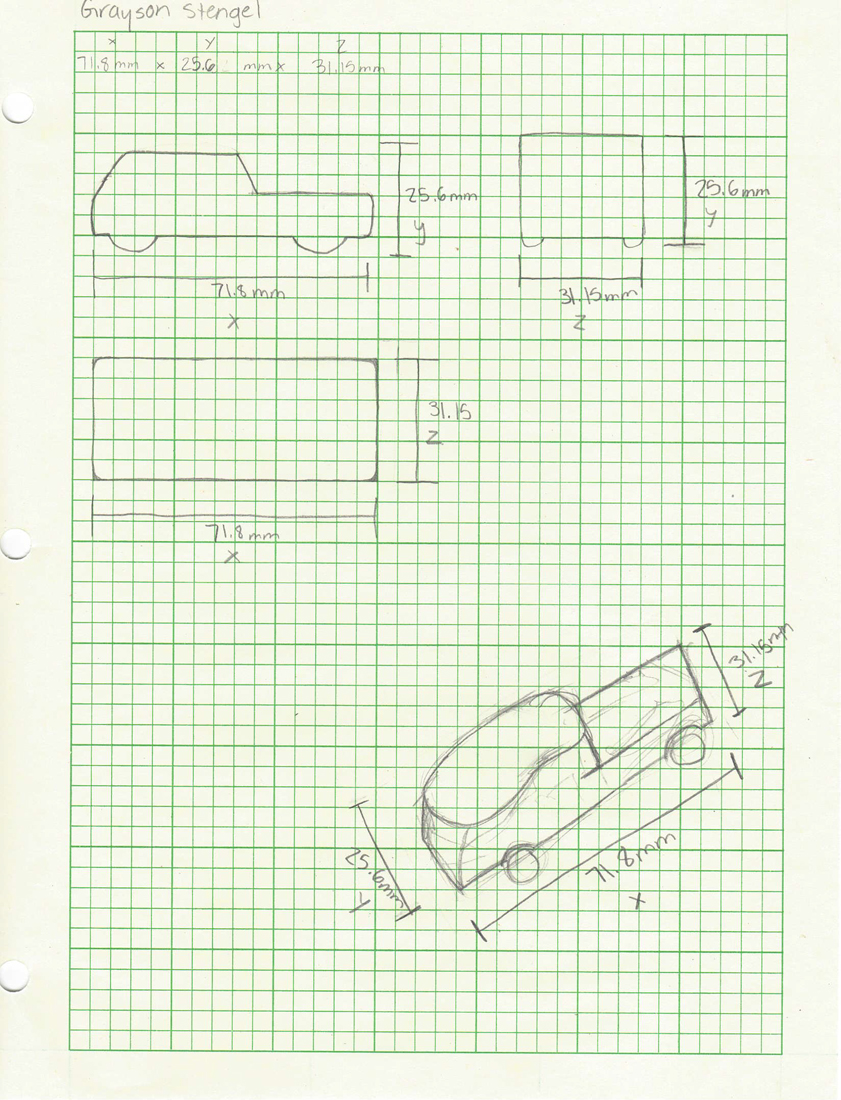 Grayson Stengel
x y z
71.8mm x 25.6 mm x 31.15mm
25.6mm
y
71.8mm
x
25.6mm
y
31.15mm
z
31.15
z
71.8mm
x
31.15mm
z
25.6mm
y
71.8mm
x